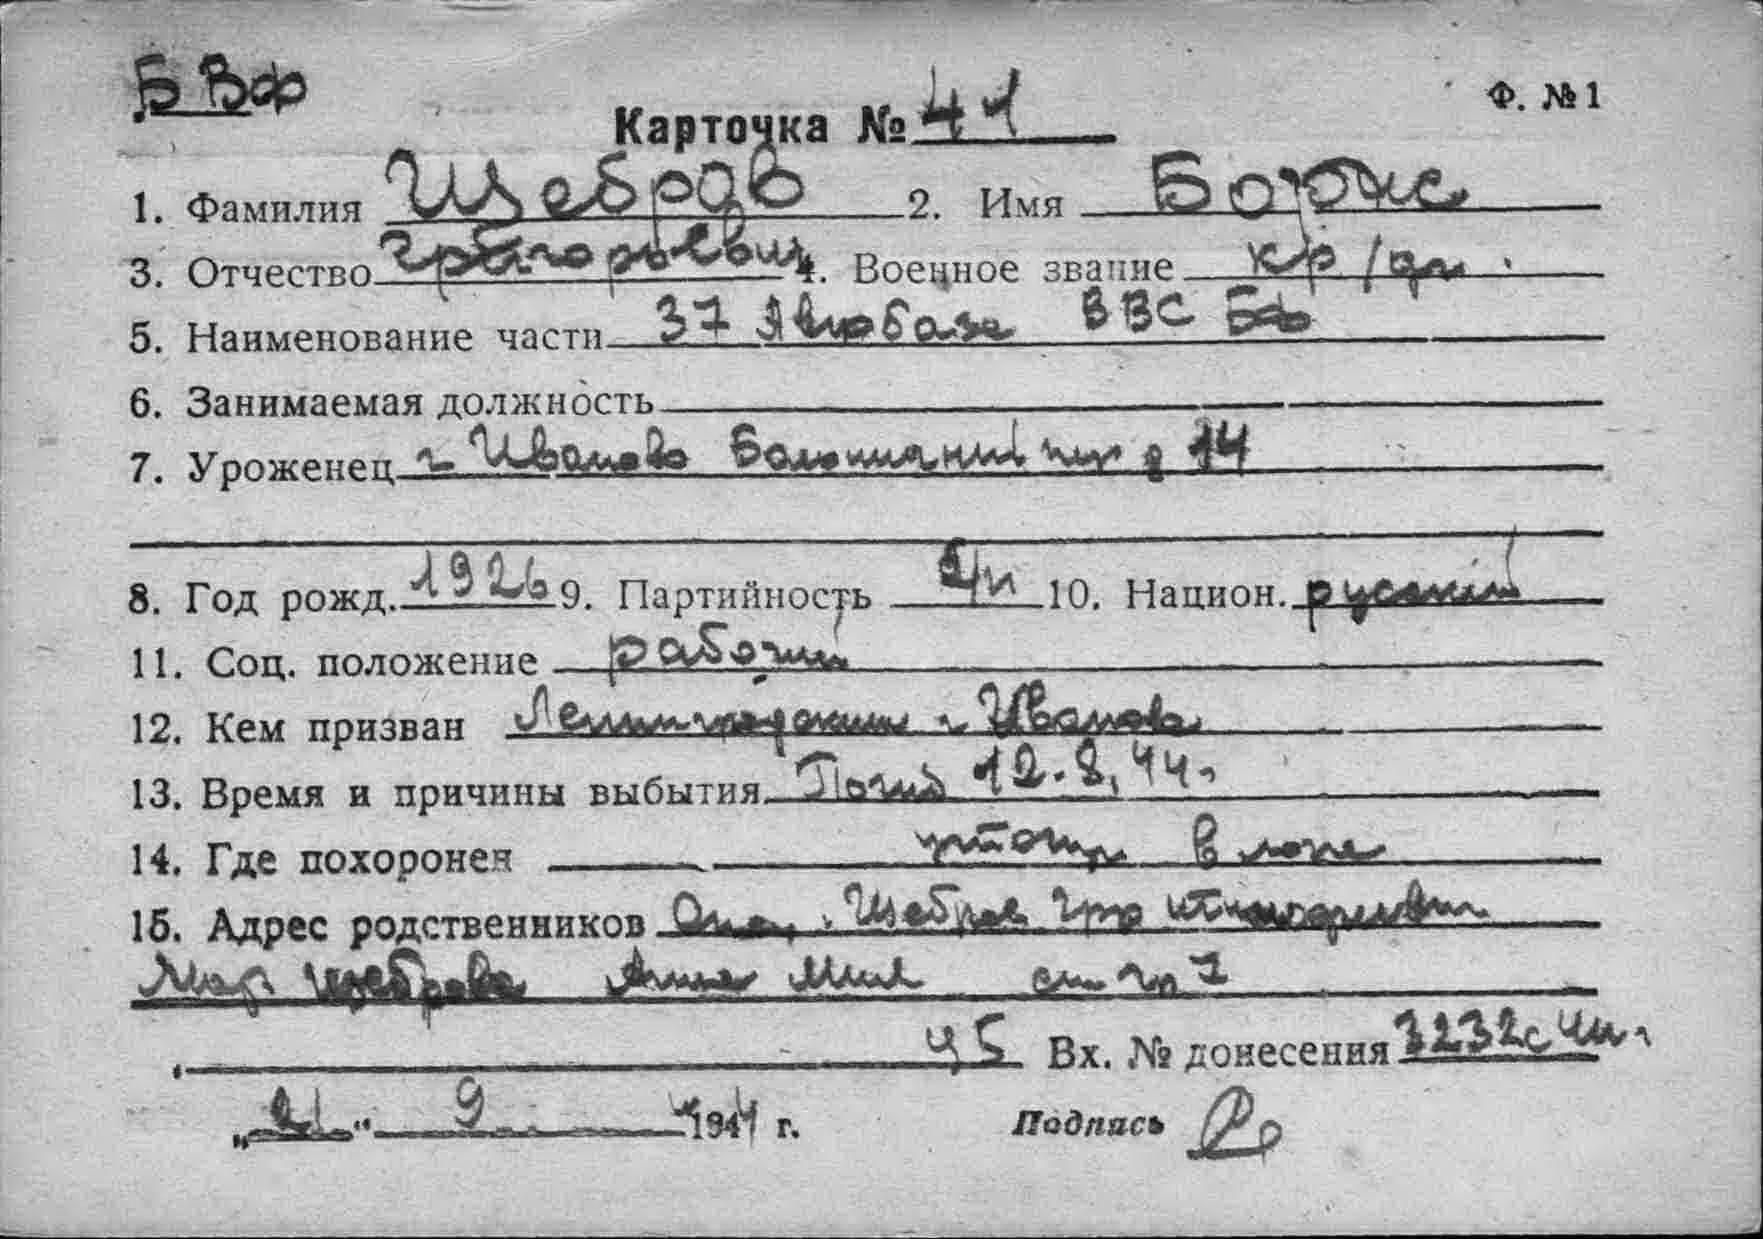 БВФ
Ф. №1
Карточка № 41
1. Фамилия Щебров 2. Имя Борис
3. Отчество Григорьевич 4. Военное звание кр/фл.
5. Наименование части 37 Авиобаза ВВС БФ
6. Занимаемая должность
7. Уроженец г Иваново д 14
8. Год рожд. 1926 9. Партийность б/п 10. Национ. русский
11. Соц. положение рабочий
12. Кем призван Ленинградским г Иванова
13. Время и причины выбытия Погиб 44г
14. Где похоронен в море
15. Адрес родственников Отец Щебров Гр
Мар Щеброва Анна Мих
45 Вх. № донесения 3232с
„21“ 9 1944 г. Подпись